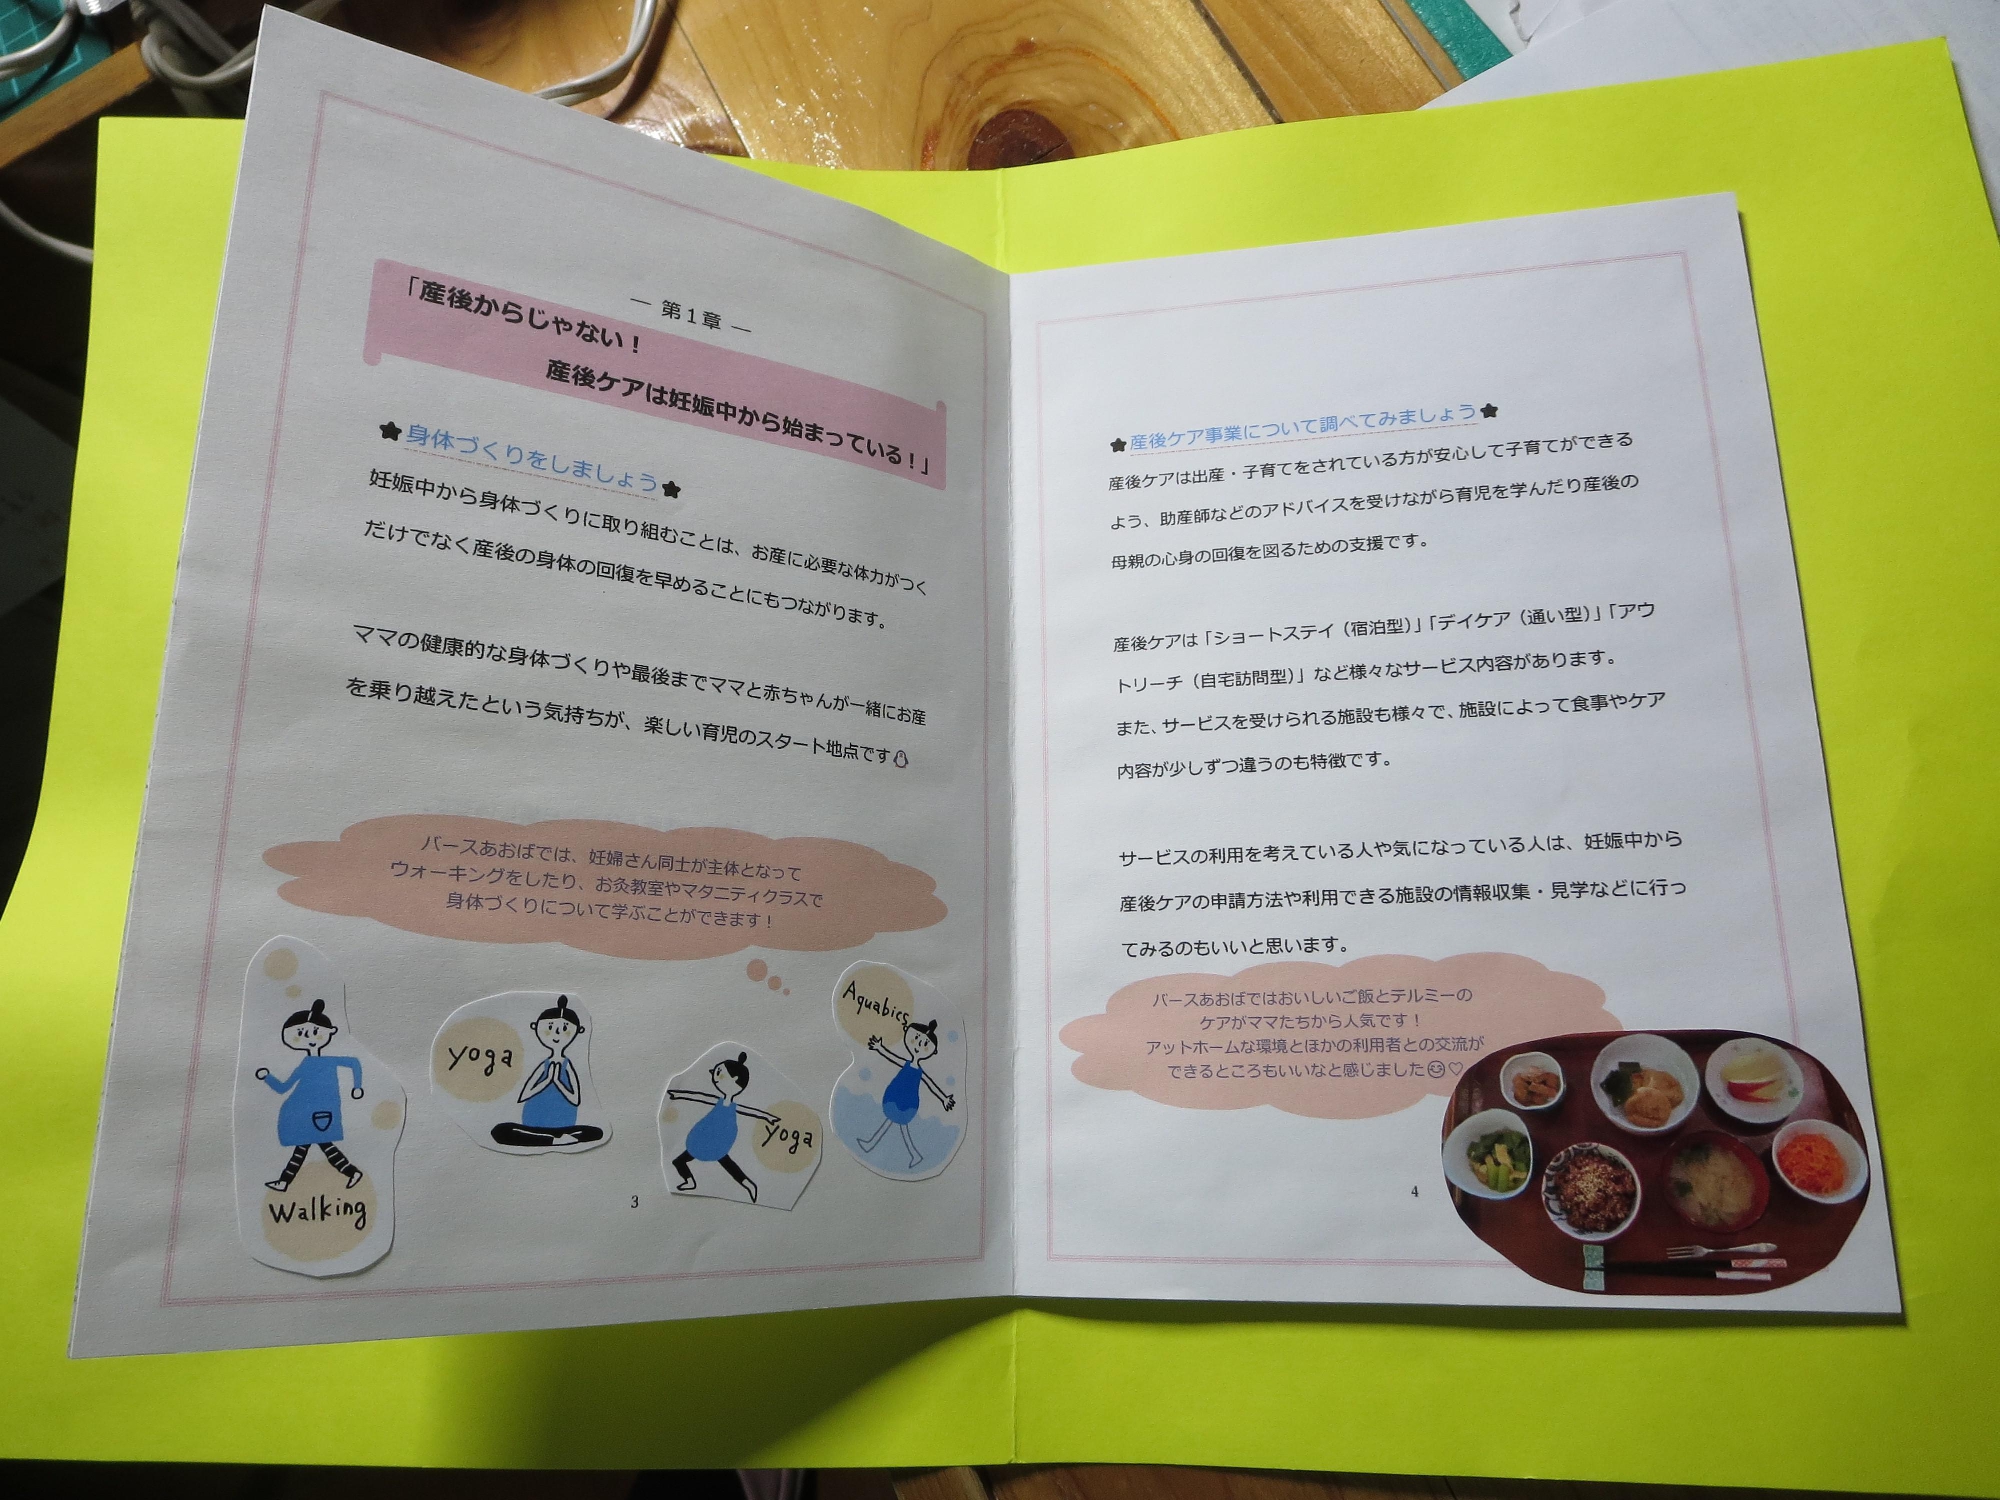 ― 第1章 ―
「産後からじゃない！
産後ケアは妊娠中から始まっている！」
★身体づくりをしましょう★
妊娠中から身体づくりに取り組むことは、お産に必要な体力がつく
だけでなく産後の身体の回復を早めることにもつながります。
ママの健康的な身体づくりや最後までママと赤ちゃんが一緒にお産
を乗り越えたという気持ちが、楽しい育児のスタート地点です
バースあおばでは、妊婦さん同士が主体となって
ウォーキングをしたり、お灸教室やマタニティクラスで
身体づくりについて学ぶことができます！
Walking
yoga
yoga
Aquabics
3
★産後ケア事業について調べてみましょう★
産後ケアは出産・子育てをされている方が安心して子育てができる
よう、助産師などのアドバイスを受けながら育児を学んだり産後の
母親の心身の回復を図るための支援です。
産後ケアは「ショートステイ（宿泊型）」「デイケア（通い型）」「アウ
トリーチ（自宅訪問型）」など様々なサービス内容があります。
また、サービスを受けられる施設も様々で、施設によって食事やケア
内容が少しずつ違うのも特徴です。
サービスの利用を考えている人や気になっている人は、妊娠中から
産後ケアの申請方法や利用できる施設の情報収集・見学などに行っ
てみるのもいいと思います。
バースあおばではおいしいご飯とテルミーの
ケアがママたちから人気です！
アットホームな環境とほかの利用者との交流が
できるところもいいなと感じました😊♡
4